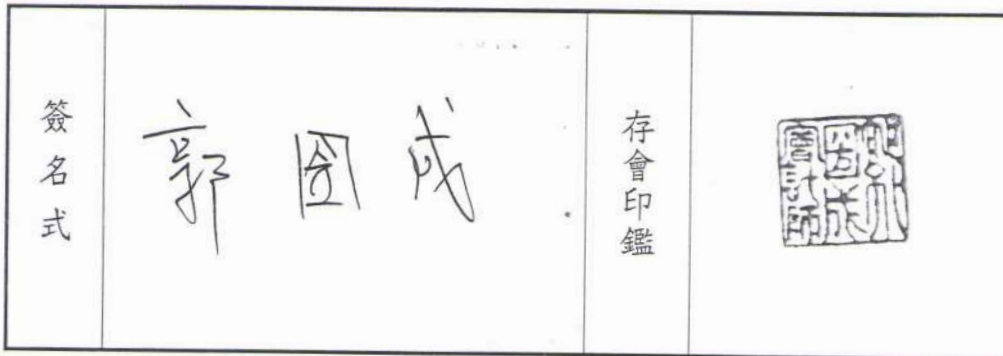 簽名式
郭國成
存會印鑑
會計師